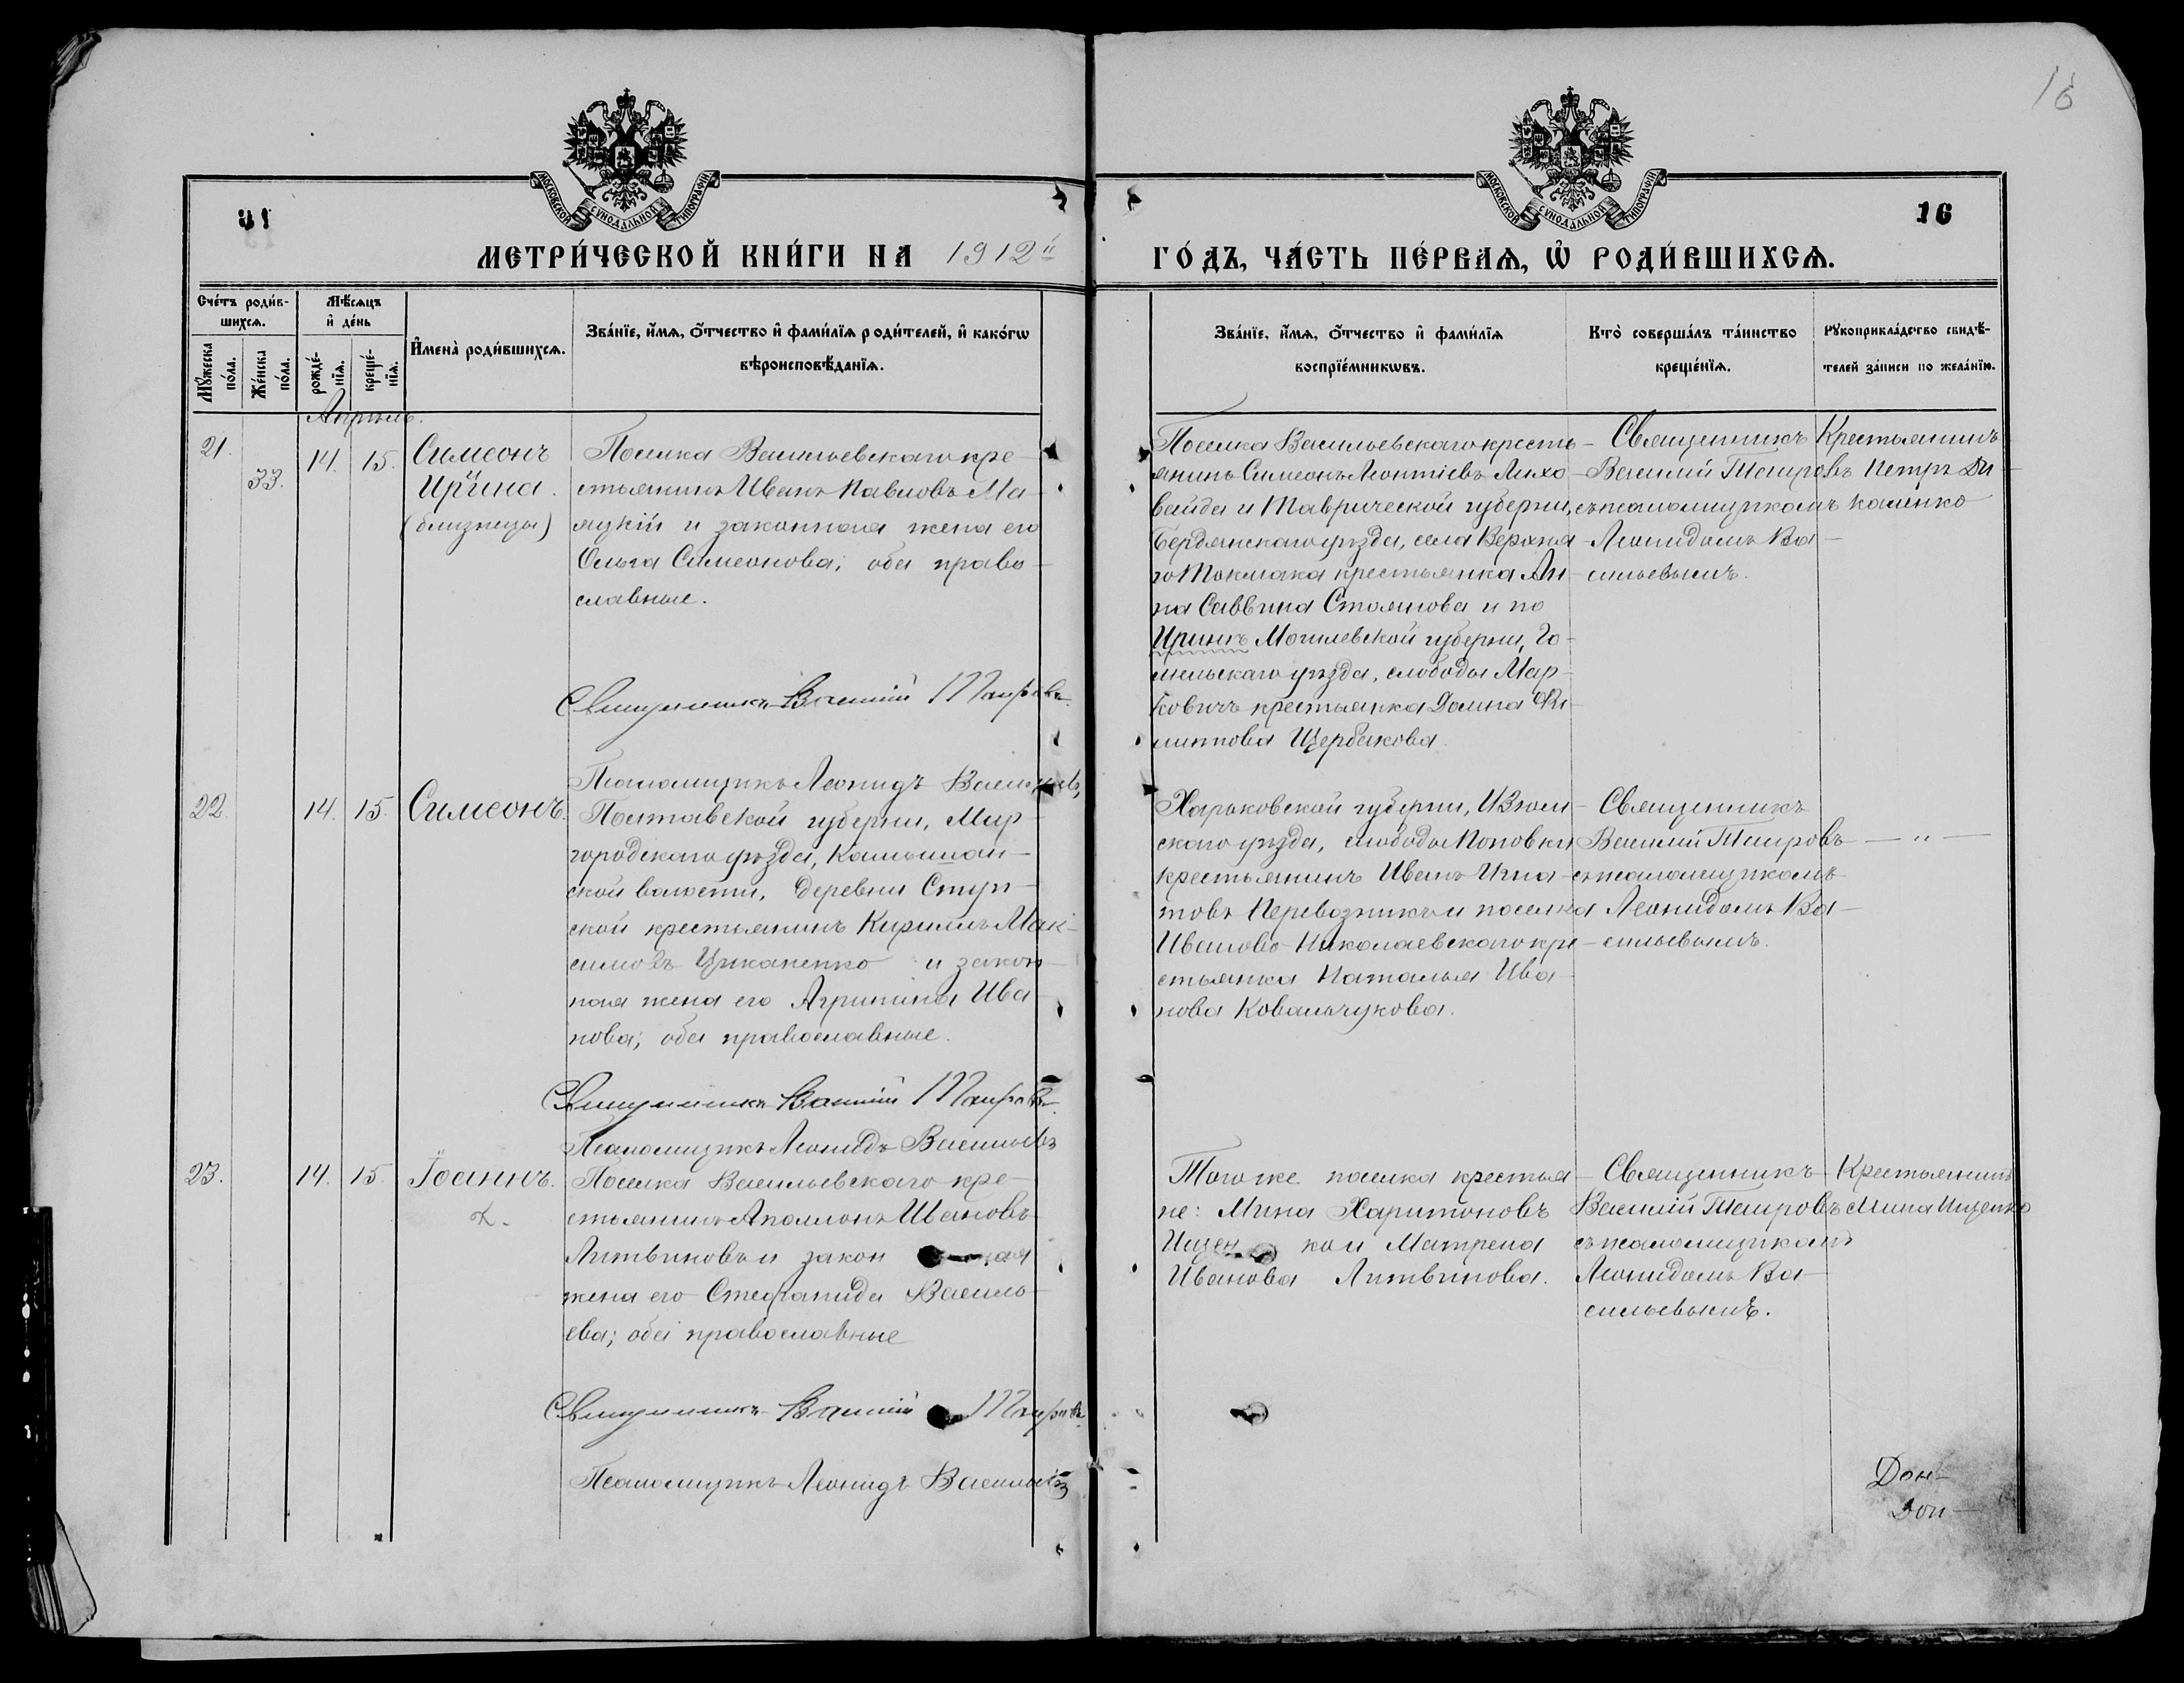 16
МОСКОВСКОЙ СѴНОДАЛЬНОЙ ТИПОГРАФІИ
МОСКОВСКОЙ СѴНОДАЛЬНОЙ ТИПОГРАФІИ
16
МЕТРИ́ЧЕСКОЙ КНИ́ГИ НА 1912й
ГО́ДЪ, ЧА́СТЬ ПЕ́РВАѦ, Ѡ҆ РОДИ́ВШИХСѦ.
Сче́тъ роди́в-
шихсѧ.
Мꙋ́жеска по́ла.
Же́нска по́ла.
Мѣ́сѧцъ
и҆ де́нь
рожде́-нїѧ.
креще́-нїѧ.
И҆мена̀ роди́вшихсѧ.
Зва́нїе, и҆́мѧ, ѻ҆́тчество и҆ фами́лїѧ роди́телей, и҆ како́гѡ
вѣроисповѣ́данїѧ.
Зва́нїе, и҆́мѧ, ѻ҆́тчество и҆ фами́лїѧ
воспрїе́мникѡвъ.
Кто̀ соверша́лъ та́инство
креще́нїѧ.
Рꙋкоприкла́дство свидѣ́-
телей за́писи по жела́нїю.
Апрѣль.
21.
33.
14. 15.
Симеонъ
Ирина.
(близнецы)
Поселка Васильевскаго кре-
стьянинъ Иванъ Павловъ Ма-
яцкій и законная жена его
Ольга Симеонова; оба право-
славные.
Священникъ Василій Таировъ.
Псаломщикъ Леонидъ Васильевъ,
Поселка Васильевскаго кресть-
янинъ Симеонъ Леонтіевъ Лихо-
вайда и Таврической губерніи,
Бердянскаго уѣзда, села Верхня-
го Токмака крестьянка Ан-
на Саввина Стоянова и по
Иринѣ Могилевской губерніи, Го-
мельскаго уѣзда, слободы Мар-
ковичъ крестьянка Домна Фи-
липпова Щербакова.
Священникъ
Василий Таировъ
съ псаломщикомъ
Леонидомъ Ва-
сильевымъ.
Крестьянинъ
Петръ Ди-
каленко
22.
14. 15.
Симеонъ.
Полтавской губерніи, Мир-
городскаго уѣзда, Камышан-
ской волости, деревни Ступ-
ской крестьянинъ Кириллъ Мак-
симовъ Цыканенко и закон-
ная жена его Агрипина Ива-
нова; оба православные.
Священникъ Василій Таировъ.
Псаломщикъ Леонидъ Васильевъ
Харьковской губерніи, Изюм-
скаго уѣзда, слободы Поповки
крестьянинъ Иванъ Игна-
товъ Перевозникъ и поселка
Иваново-Николаевскаго кре-
стьянка Наталья Ива-
нова Ковальчукова.
Священникъ
Василій Таировъ
съ псаломщикомъ
Леонидомъ Ва-
сильевымъ.
— „ —
23.
14. 15.
Іоаннъ.
Поселка Васильевскаго кре-
стьянинъ Аполлонъ Ивановъ
Литвиновъ и закон ная
жена его Стефанида Василь-
ева; оба православные
Священникъ Василій Таировъ.
Псаломщикъ Леонидъ Васильевъ
Того же поселка крестья-
не: Мина Харитоновъ
Ищен ко и Матрена
Иванова Литвинова.
Священникъ
Василій Таировъ
съ псаломщикомъ
Леонидомъ Ва-
сильевымъ.
Крестьянинъ
Мина Ищенко
Дон-
Дон-